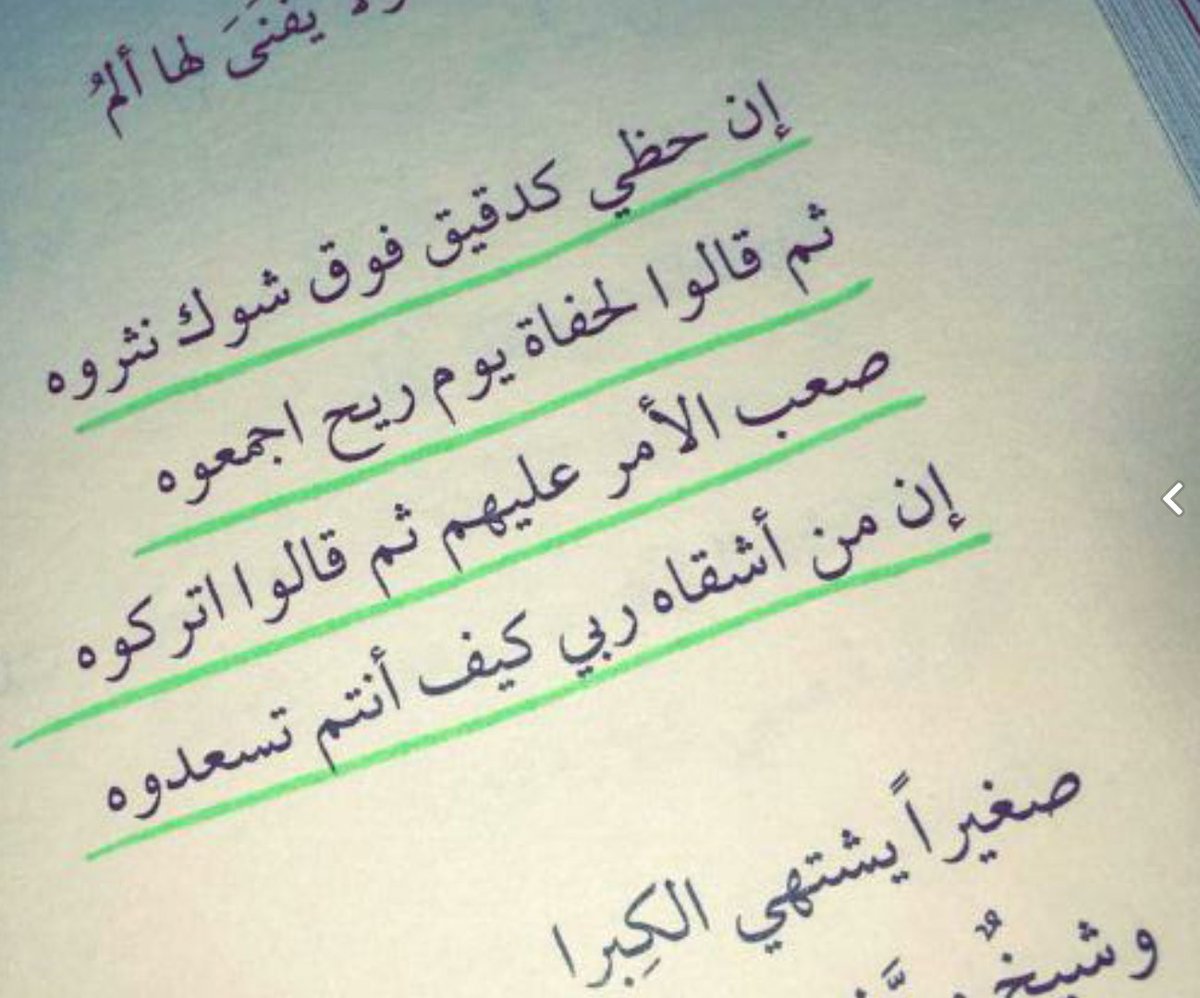 يفنىَ لها ألمُ
إن حظي كدقيق فوق شوك نثروه
ثم قالوا لحفاة يوم ريح اجمعوه
صعب الأمر عليهم ثم قالوا اتركوه
إن من أشقاه ربي كيف أنتم تسعدوه
صغيراً يشتهي الكِبرا
وشيخٌ